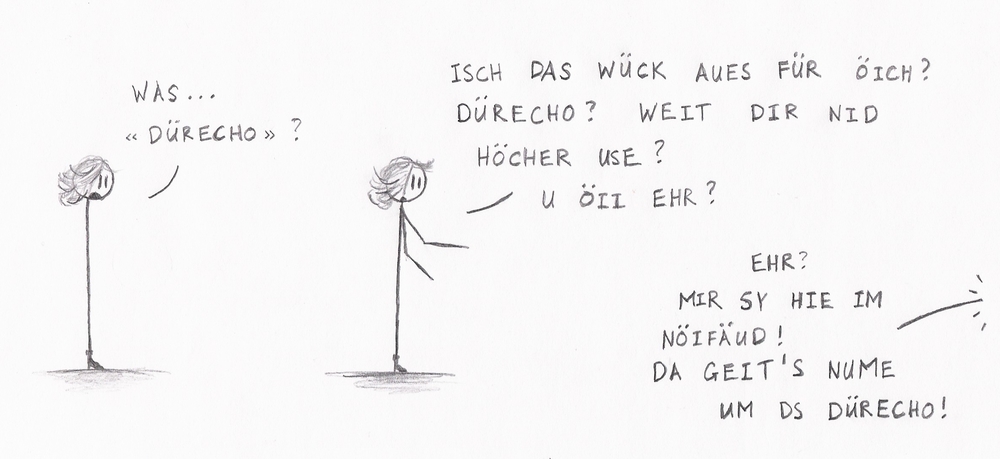 WAS...
«DÜRECHO»?
ISCH DAS WÜCK AUES FÜR ÖICH?
DÜRECHO? WEIT DIR NID
HÖCHER USE?
U ÖII EHR?
EHR?
MIR SY HIE IM
NÖIFÄUD!
DA GEIT'S NUME
UM DS DÜRECHO!